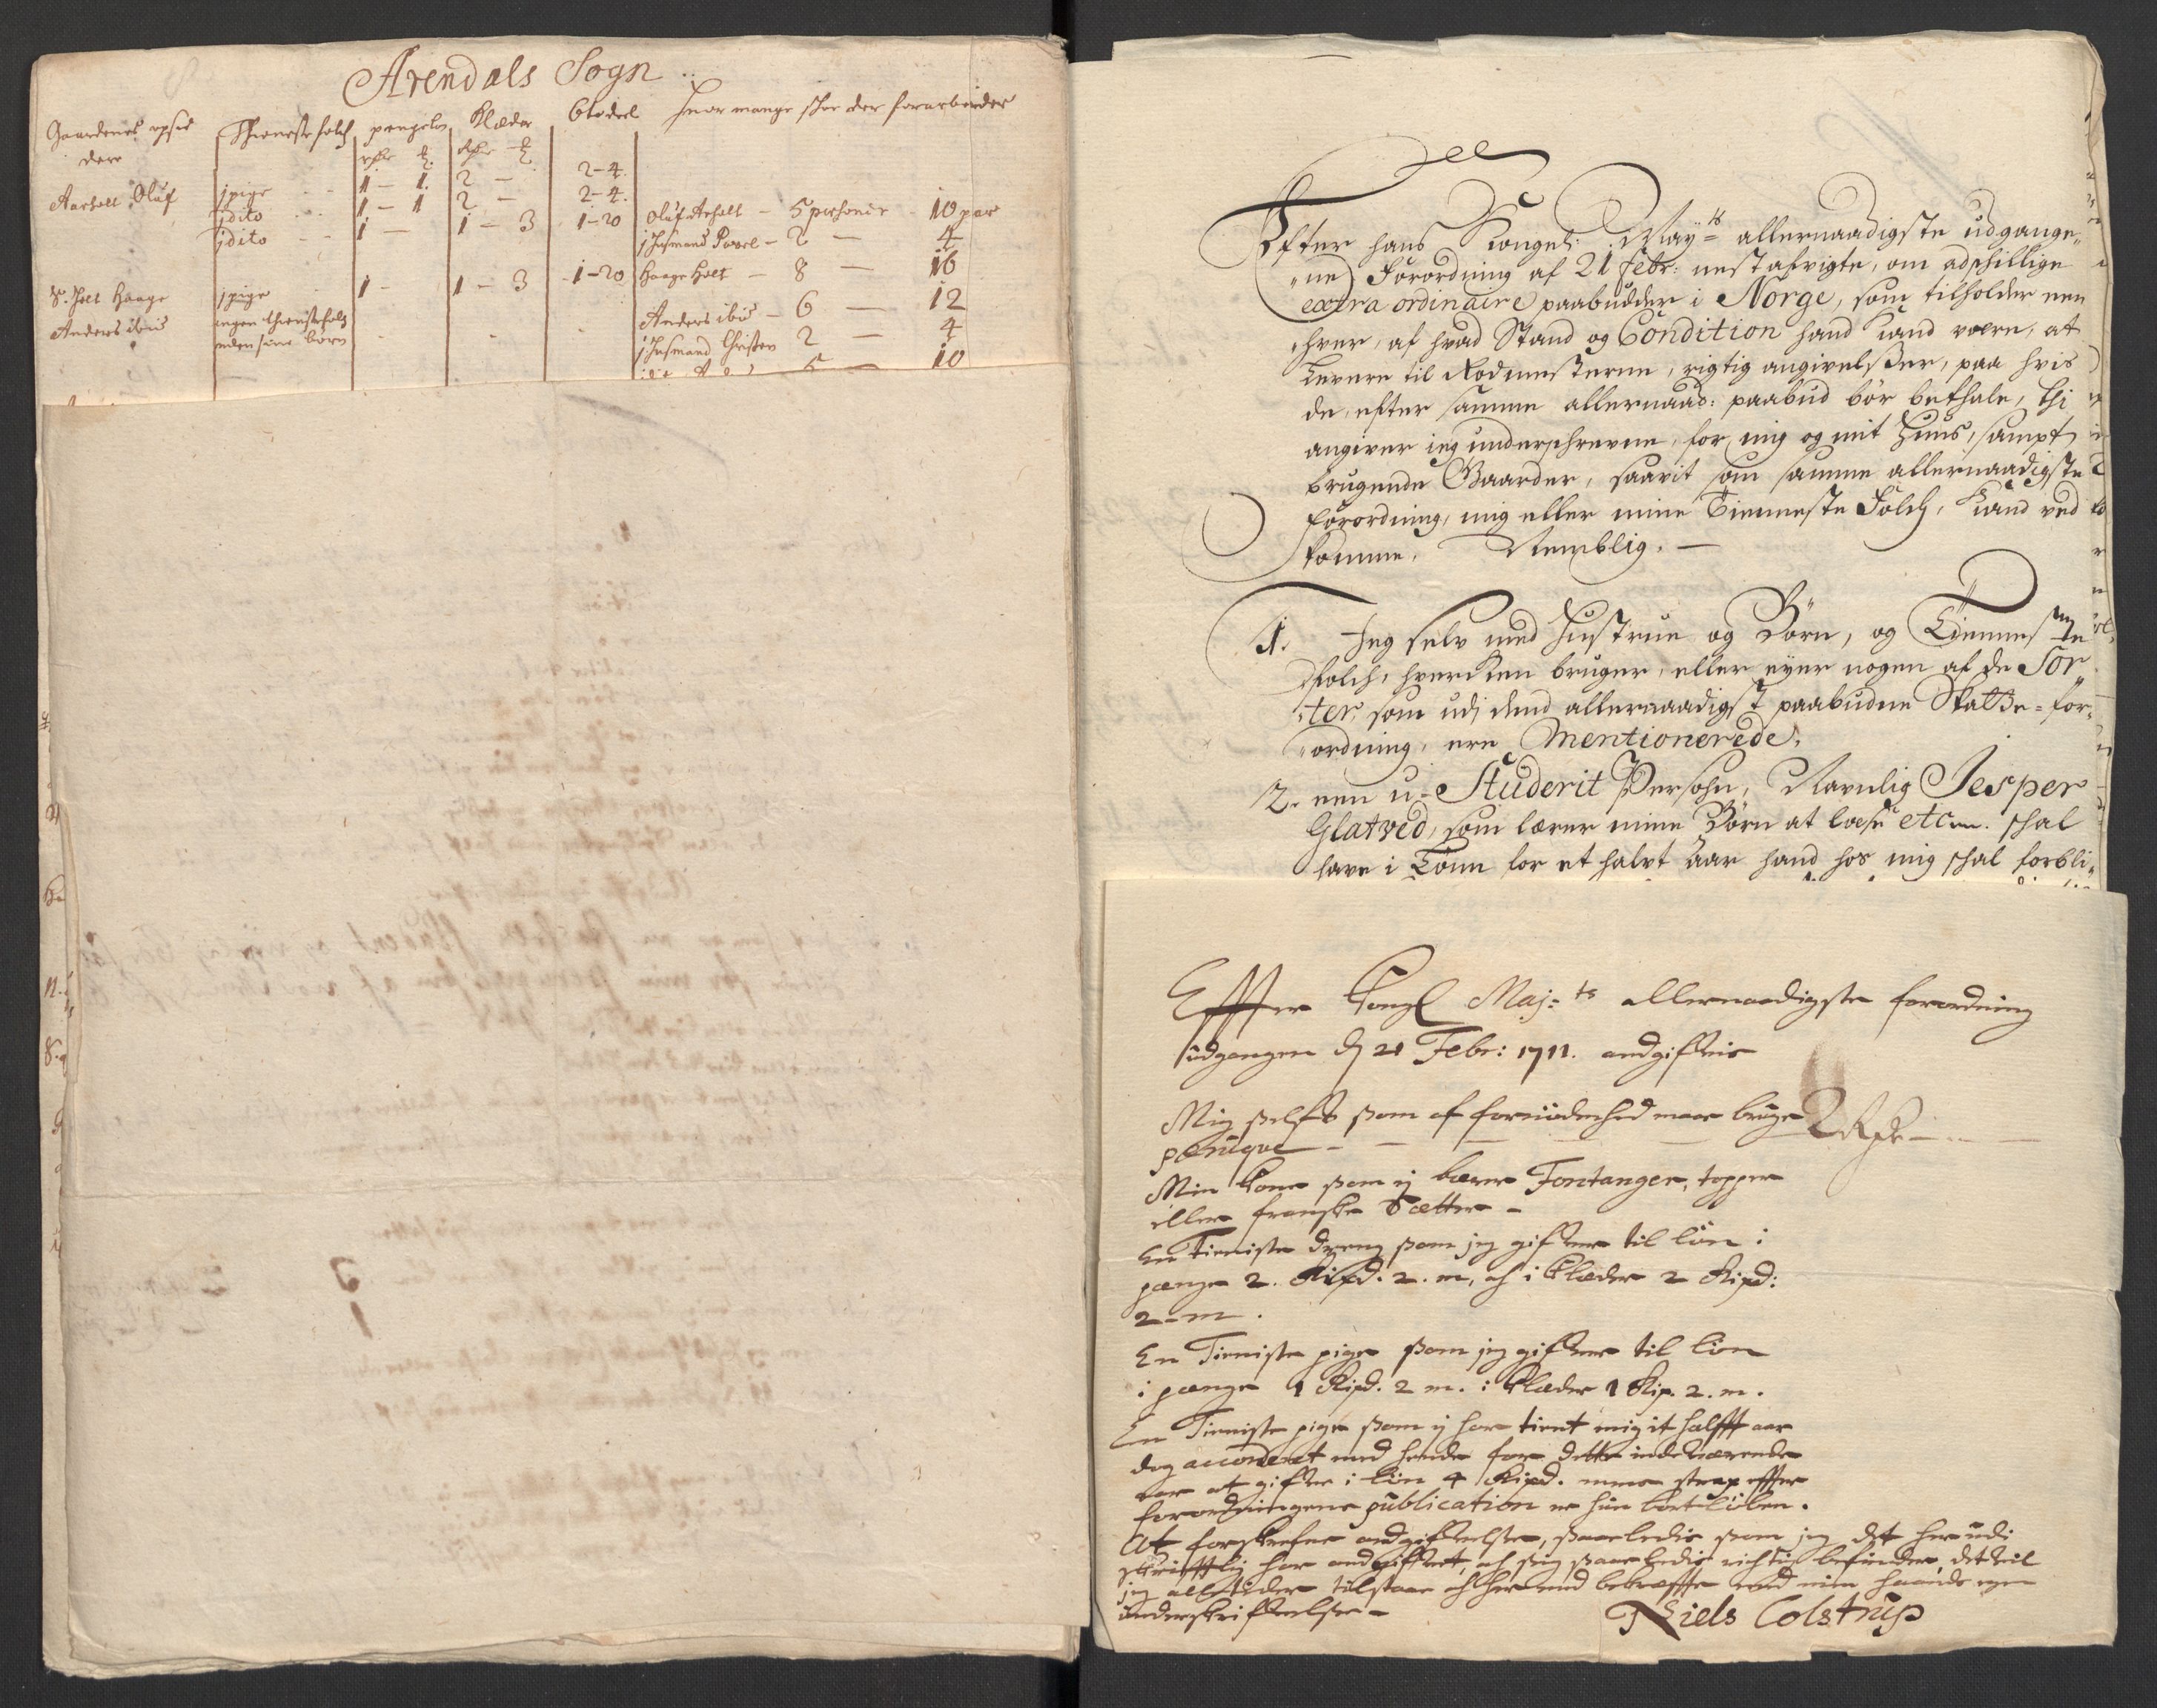 Arendals Sogn
Gaardenes opsid dere | Thienistefolch | pengeløn | Klæder | Ølodeel | huor mange schoe der forarbeides
rdr ... | rdr ...
Aarholt Oluf | 1 pige | 1 - 1. | 2 - | 2-4.
1 dito | 1 - 1 | 2 - | 2-4.
1 dito | 1 - | 1 - 3 | 1-20 | Oluf Arholt - 5 pershoner - 10 par
j husmand Povel - 2 - 4
S. Holt Haage | 1 pige | 1 - | 1 - 3 | 1-20 | Haage Holt - 8 - 16
Anders ibid | ingen thienistefolch uden sine born | Anders ibid - 6 - 12
j husmand Christen 2 - 4
5 - 10
Efter hans Kongel: Mayts allernaadigste udgange„
„ne Forordning af 21 febr: nest afvigte, om adschillige
extra ordinaire paabudder i Norge, som tilholder een
hver, af hvad Stand og Condition hand kand være, at
Levere til Rodemesterne, rigtig angivelsser, paa hvis
de, efter samme allernaad: paabud bør bethale, Thi
angiver ieg underschrevne, for mig og mit Huus, sampt
brugende Gaarder, saavit som samme allernaadigste
forordning, mig eller mine Tienneste Folch, kand ved
komme. Nemblig. —
1. Jeg selv med Hustrue og Børn, og Tienneste
folch, hvercken bruger, eller eyer nogen af de Sor„
„ter, som udj dend allernaadigst paabudne Skatte-for„
„ordning, ere Mentionerede.
2. een u-Studerit Persohn, Navnlig Jesper
Glatved, som lærer mine Børn at læse etc. schal
have i Lønn for et halvt aar hand hos mig schal forbli„
Effter Kongl Maj:ts allernaadigste forordning
udgangen d 21 Febr: 1711. andgiffvis
Mig selfv som af fornødenhed maa bruge
peruqve - - - - 2 Rdr - - -
Min kone som ej bærer Fontanger, topper
eller franske Sætter -
En Tieniste dreng som jeg gifver til løn i
penge 2. Rixd. 2. m, och i klæder 2 Rixd:
2 - m.
En Tieniste pige som jeg gifver til løn
i penge 1 Rixd. 2 m. i klæder 1 Rix. 2. m.
En Tieniste pige som ej har tient mig it halfft aar
dog accorderet med hende for dette indeværende
aar at gifve i løn 4 Rixd. men strax effter
forordningens publication er hun bortløben.
At forskrefne andgifvelse, saaledis som jeg det her udi
skrifftlig har andgifvet, och sig saaledis richtig befinder, det vil
jeg alle tider tilstaae och her med bekreffte med min haands egen
underskrifvelse -
Niels Colstrup